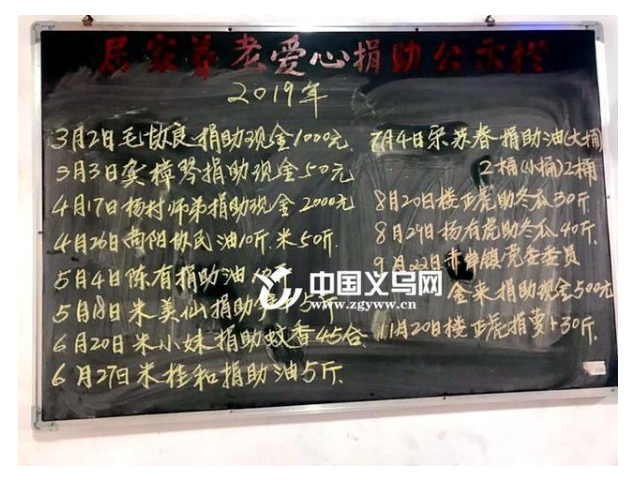 居家养老爱心捐助公示栏
2019年
3月2日毛协良捐助现金1000元
3月3日龚樟琴捐助现金50元
4月17日杨村师弟捐助现金2000元
4月26日向阳协民油10斤.米50斤.
5月4日陈有捐助油
5月18日米美仙捐助
6月20日米小妹捐助蚊香45合
6月27日米桂和捐助油5斤.
7月4日宋苏春捐助油(大桶)
2桶(小桶)2桶
8月20日楼正虎助冬瓜30斤
8月29日杨有虎助冬瓜40斤.
9月22日赤岸镇党委委员
金来捐助现金500元
11月20日楼正虎捐萝卜30斤.
中国义乌网
www.zgyww.cn